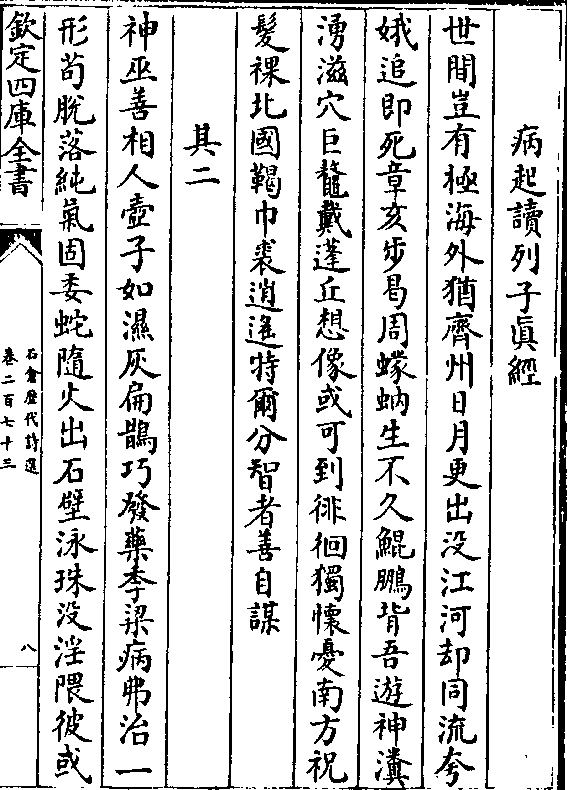 病起讀列子眞經
世間豈有極海外猶齊州日月更出没江河却同流夸
娥追即死章亥步曷周蠓蚋生不久鯤鵬背吾遊神瀵
湧滋穴巨鼇戴蓬丘想像或可到徘徊獨懷憂南方祝
髮裸北國鞨巾裘逍遙特爾分智者善自謀
其二
神巫善相人壺子如濕灰扁鵲巧發藥季梁病弗治一
形苟脫落純氣固委蛇隨火出石壁泳珠没淫隈彼或
欽定四庫全書
石倉歷代詩選
卷二百七十三
八